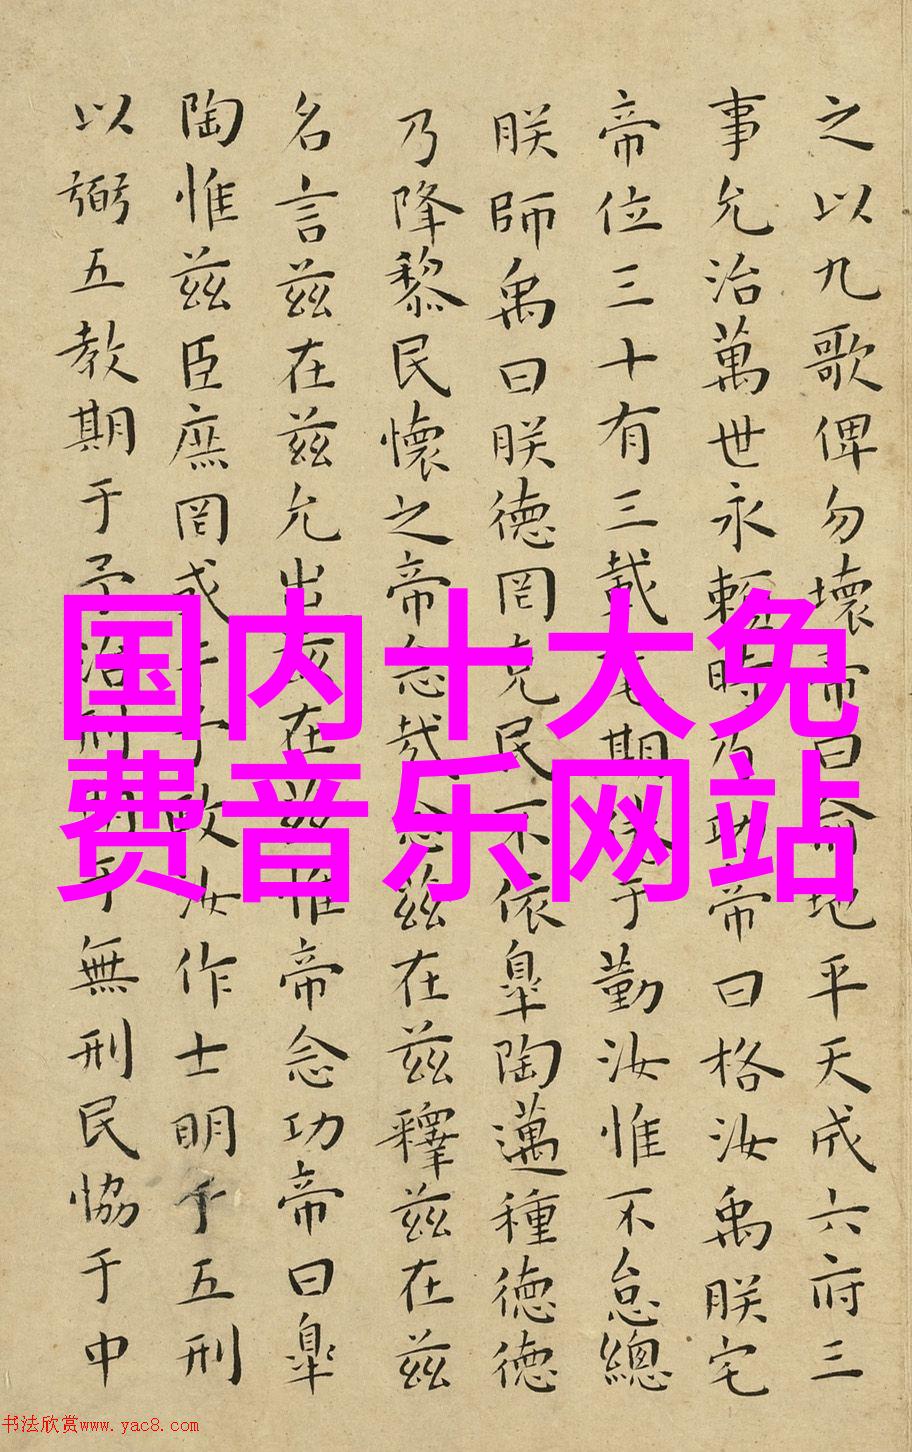 之以九歌俾勿壞帝曰俞地平天成六府三
事允治萬世永賴時乃功帝曰格汝禹朕宅
帝位三十有三載耄期倦于勤汝惟不怠總
朕師禹曰朕德罔克民不依皐陶邁種德德
乃降黎民懷之帝念哉念茲在茲釋茲在茲
名言茲在茲允出茲在茲惟帝念功帝曰皐
陶惟茲臣庶罔或干予政汝作士明于五刑
以弼五教期于予治刑期于無刑民協于中
国内十大免
费音乐网站
书法欣赏www.yac8.com